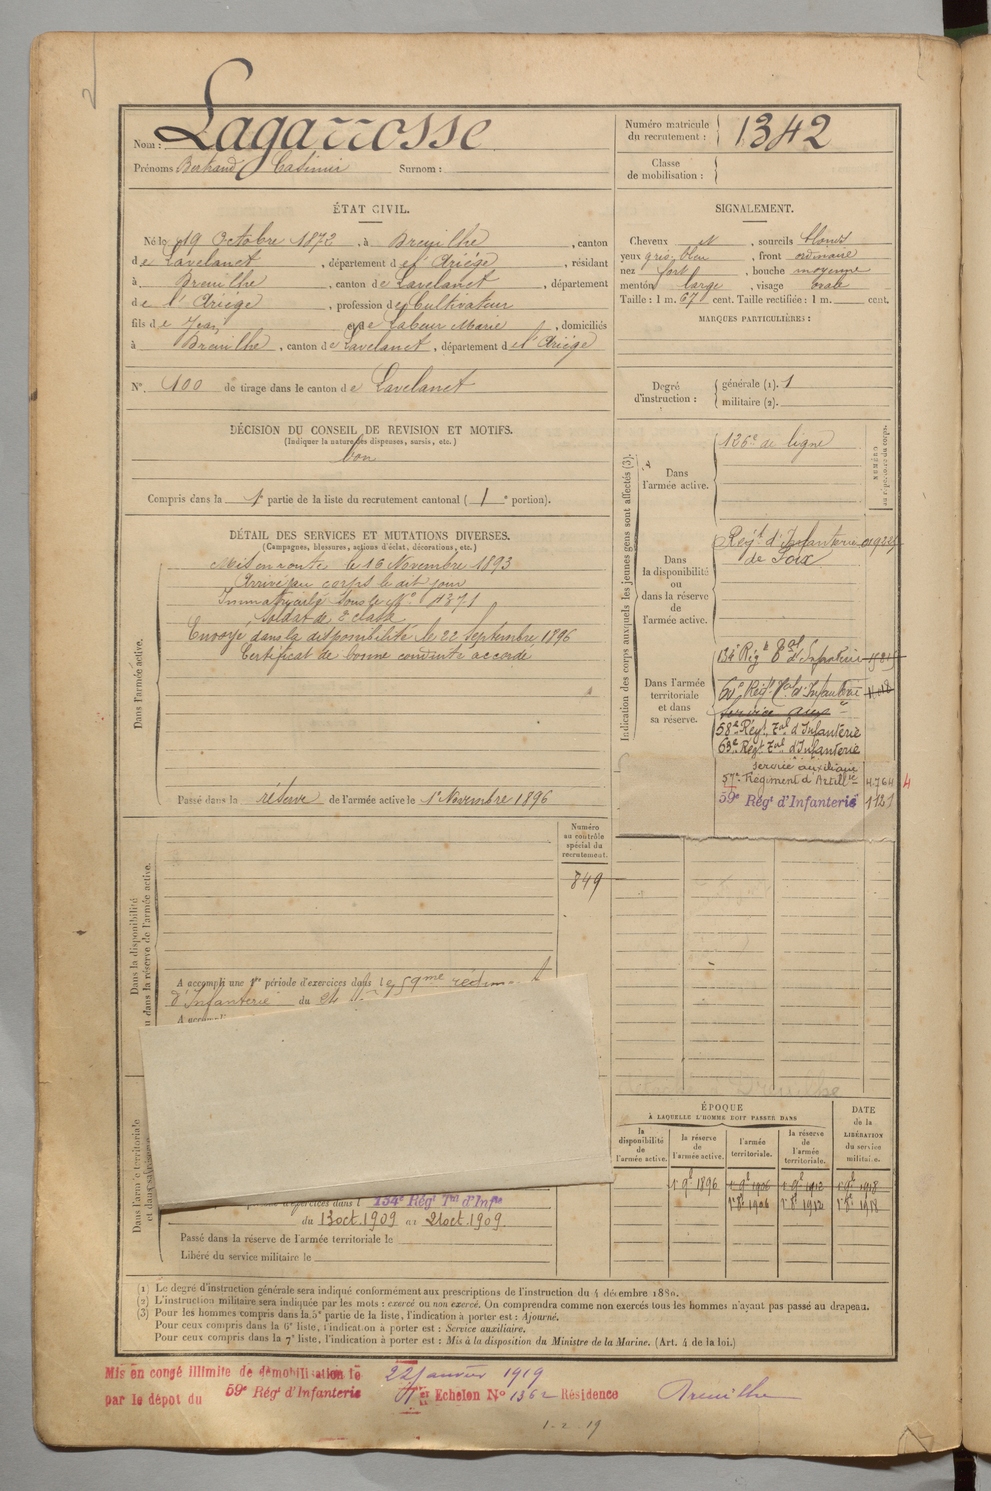 Nom : Lagarrosse
Prénoms Bertrand Casimir Surnom :
Numéro matricule du recrutement : 1342
Classe de mobilisation :
ÉTAT CIVIL.
Né le 19 Octobre 1872, à Dreuilhe, canton
de Lavelanet, département de l'Ariège, résidant
à Dreuilhe, canton de Lavelanet, département
de l'Ariège, profession de Cultivateur
fils de Jean et de Labeur Marie, domiciliés
à Dreuilhe, canton de Lavelanet, département de l'Ariège
N° 100 de tirage dans le canton de Lavelanet
DÉCISION DU CONSEIL DE REVISION ET MOTIFS.
(Indiquer la nature des dispenses, sursis, etc.)
bon
Compris dans la 1e partie de la liste du recrutement cantonal (1e portion).
SIGNALEMENT.
Cheveux , sourcils blonds
yeux gris bleu, front ordinaire
nez fort, bouche moyenne
menton large, visage ovale
Taille : 1 m. 67 cent. Taille rectifiée : 1 m. cent.
MARQUES PARTICULIÈRES :
Degré d'instruction : générale (1). 1
militaire (2).
DÉTAIL DES SERVICES ET MUTATIONS DIVERSES.
(Campagnes, blessures, actions d'éclat, décorations, etc.)
Dans l'armée active.
Mis en route le 16 Novembre 1893
Arrivé au corps le dit jour
Immatriculé sous le N° 1371
Soldat de 2e classe
Envoyé dans la disponibilité le 22 Septembre 1896
Certificat de bonne conduite accordé
Passé dans la réserve de l'armée active le 1er Novembre 1896
Indication des corps auxquels les jeunes gens sont affectés (3).
Dans l'armée active.
126e de ligne
Dans la disponibilité ou dans la réserve de l'armée active.
Regt d'Infanterie
de Foix
Dans l'armée territoriale et dans sa réserve.
134e Regt Tal d'Infanterie
60e Regt Tal d'Infanterie
service aux
58e Régt Tal d'Infanterie
63e Régt Tal d'Infanterie
service auxiliaire
57e Régiment d'Artillie 4764 4
59e Régt d'Infanterie 1121
Numéro au contrôle spécial du recrutement.
849
Dans la disponibilité ou dans la réserve de l'armée active.
A accompli une 1re période d'exercices dans le 59me régiment
d'Infanterie du
A accompli
Dans l'armée territoriale et dans sa réserve
d'exercices dans l 134e Régt Tal d'Infie
du 13 oct. 1909 au 21 oct. 1909.
Passé dans la réserve de l'armée territoriale le
Libéré du service militaire le
ÉPOQUE
À LAQUELLE L'HOMME DOIT PASSER DANS
la disponibilité de l'armée active.
la réserve de l'armée active.
l'armée territoriale.
la réserve de l'armée territoriale.
DATE de la LIBÉRATION du service militaire.
1r 9bre 1896 1r 9bre 1906 1r 9bre 1912 1r 9bre 1918
1r 8bre 1906 1r 8bre 1912 1r 8bre 1918
(1) Le degré d'instruction générale sera indiqué conformément aux prescriptions de l'instruction du 4 décembre 1889.
(2) L'instruction militaire sera indiquée par les mots : exercé ou non exercé. On comprendra comme non exercés tous les hommes n'ayant pas passé au drapeau.
(3) Pour les hommes compris dans la 5e partie de la liste, l'indication à porter est : Ajourné.
Pour ceux compris dans la 6e liste, l'indication à porter est : Service auxiliaire.
Pour ceux compris dans la 7e liste, l'indication à porter est : Mis à la disposition du Ministre de la Marine. (Art. 4 de la loi.)
Mis en congé illimité de démobilisation le 22 Janvier 1919
par le dépôt du 59e Régt d'Infanterie Echelon N° 1362 Résidence Dreuilhe
1-2 19